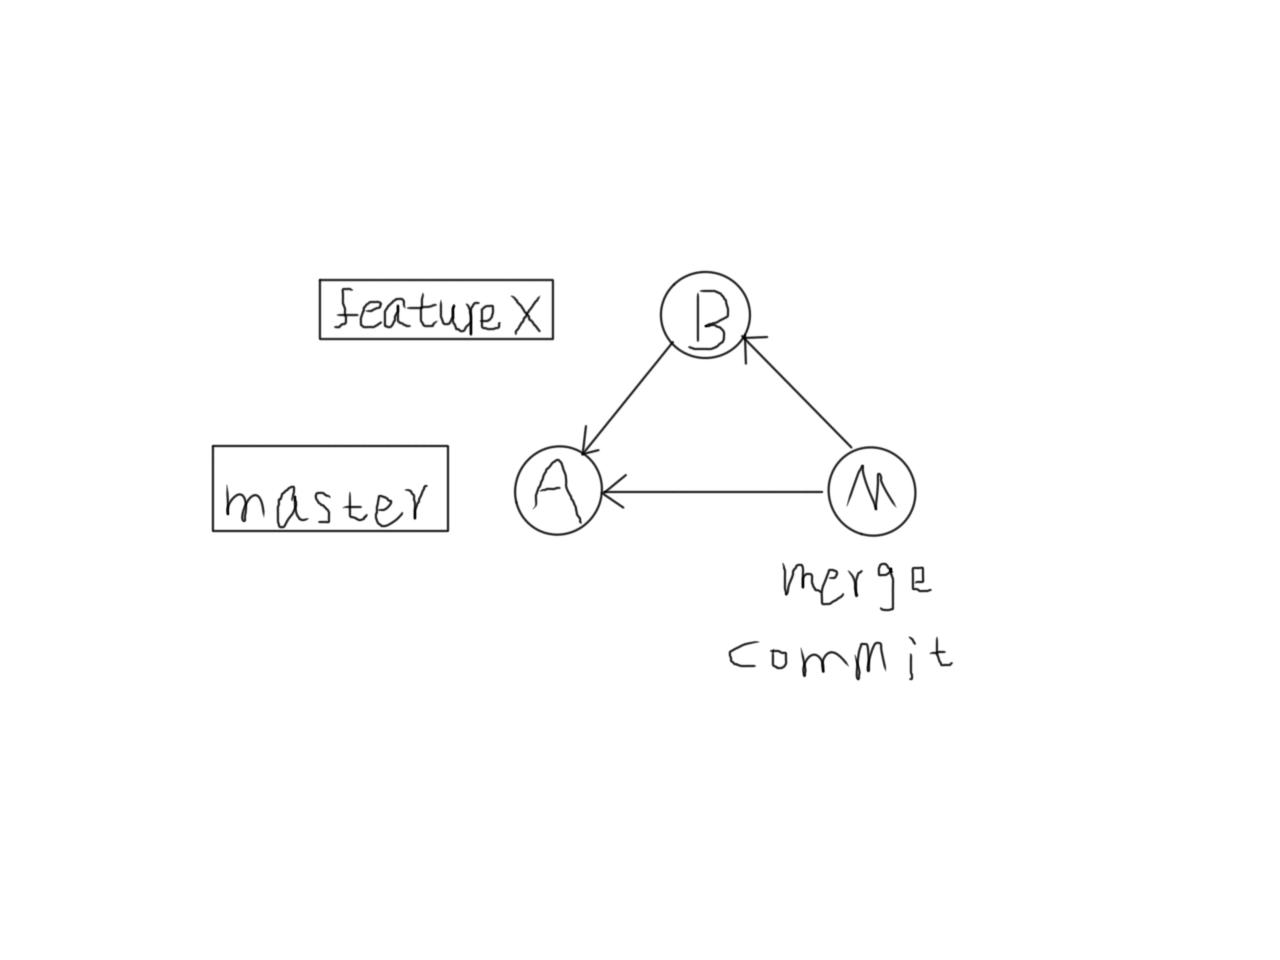 featureX
B
master
A
M
merge
commit